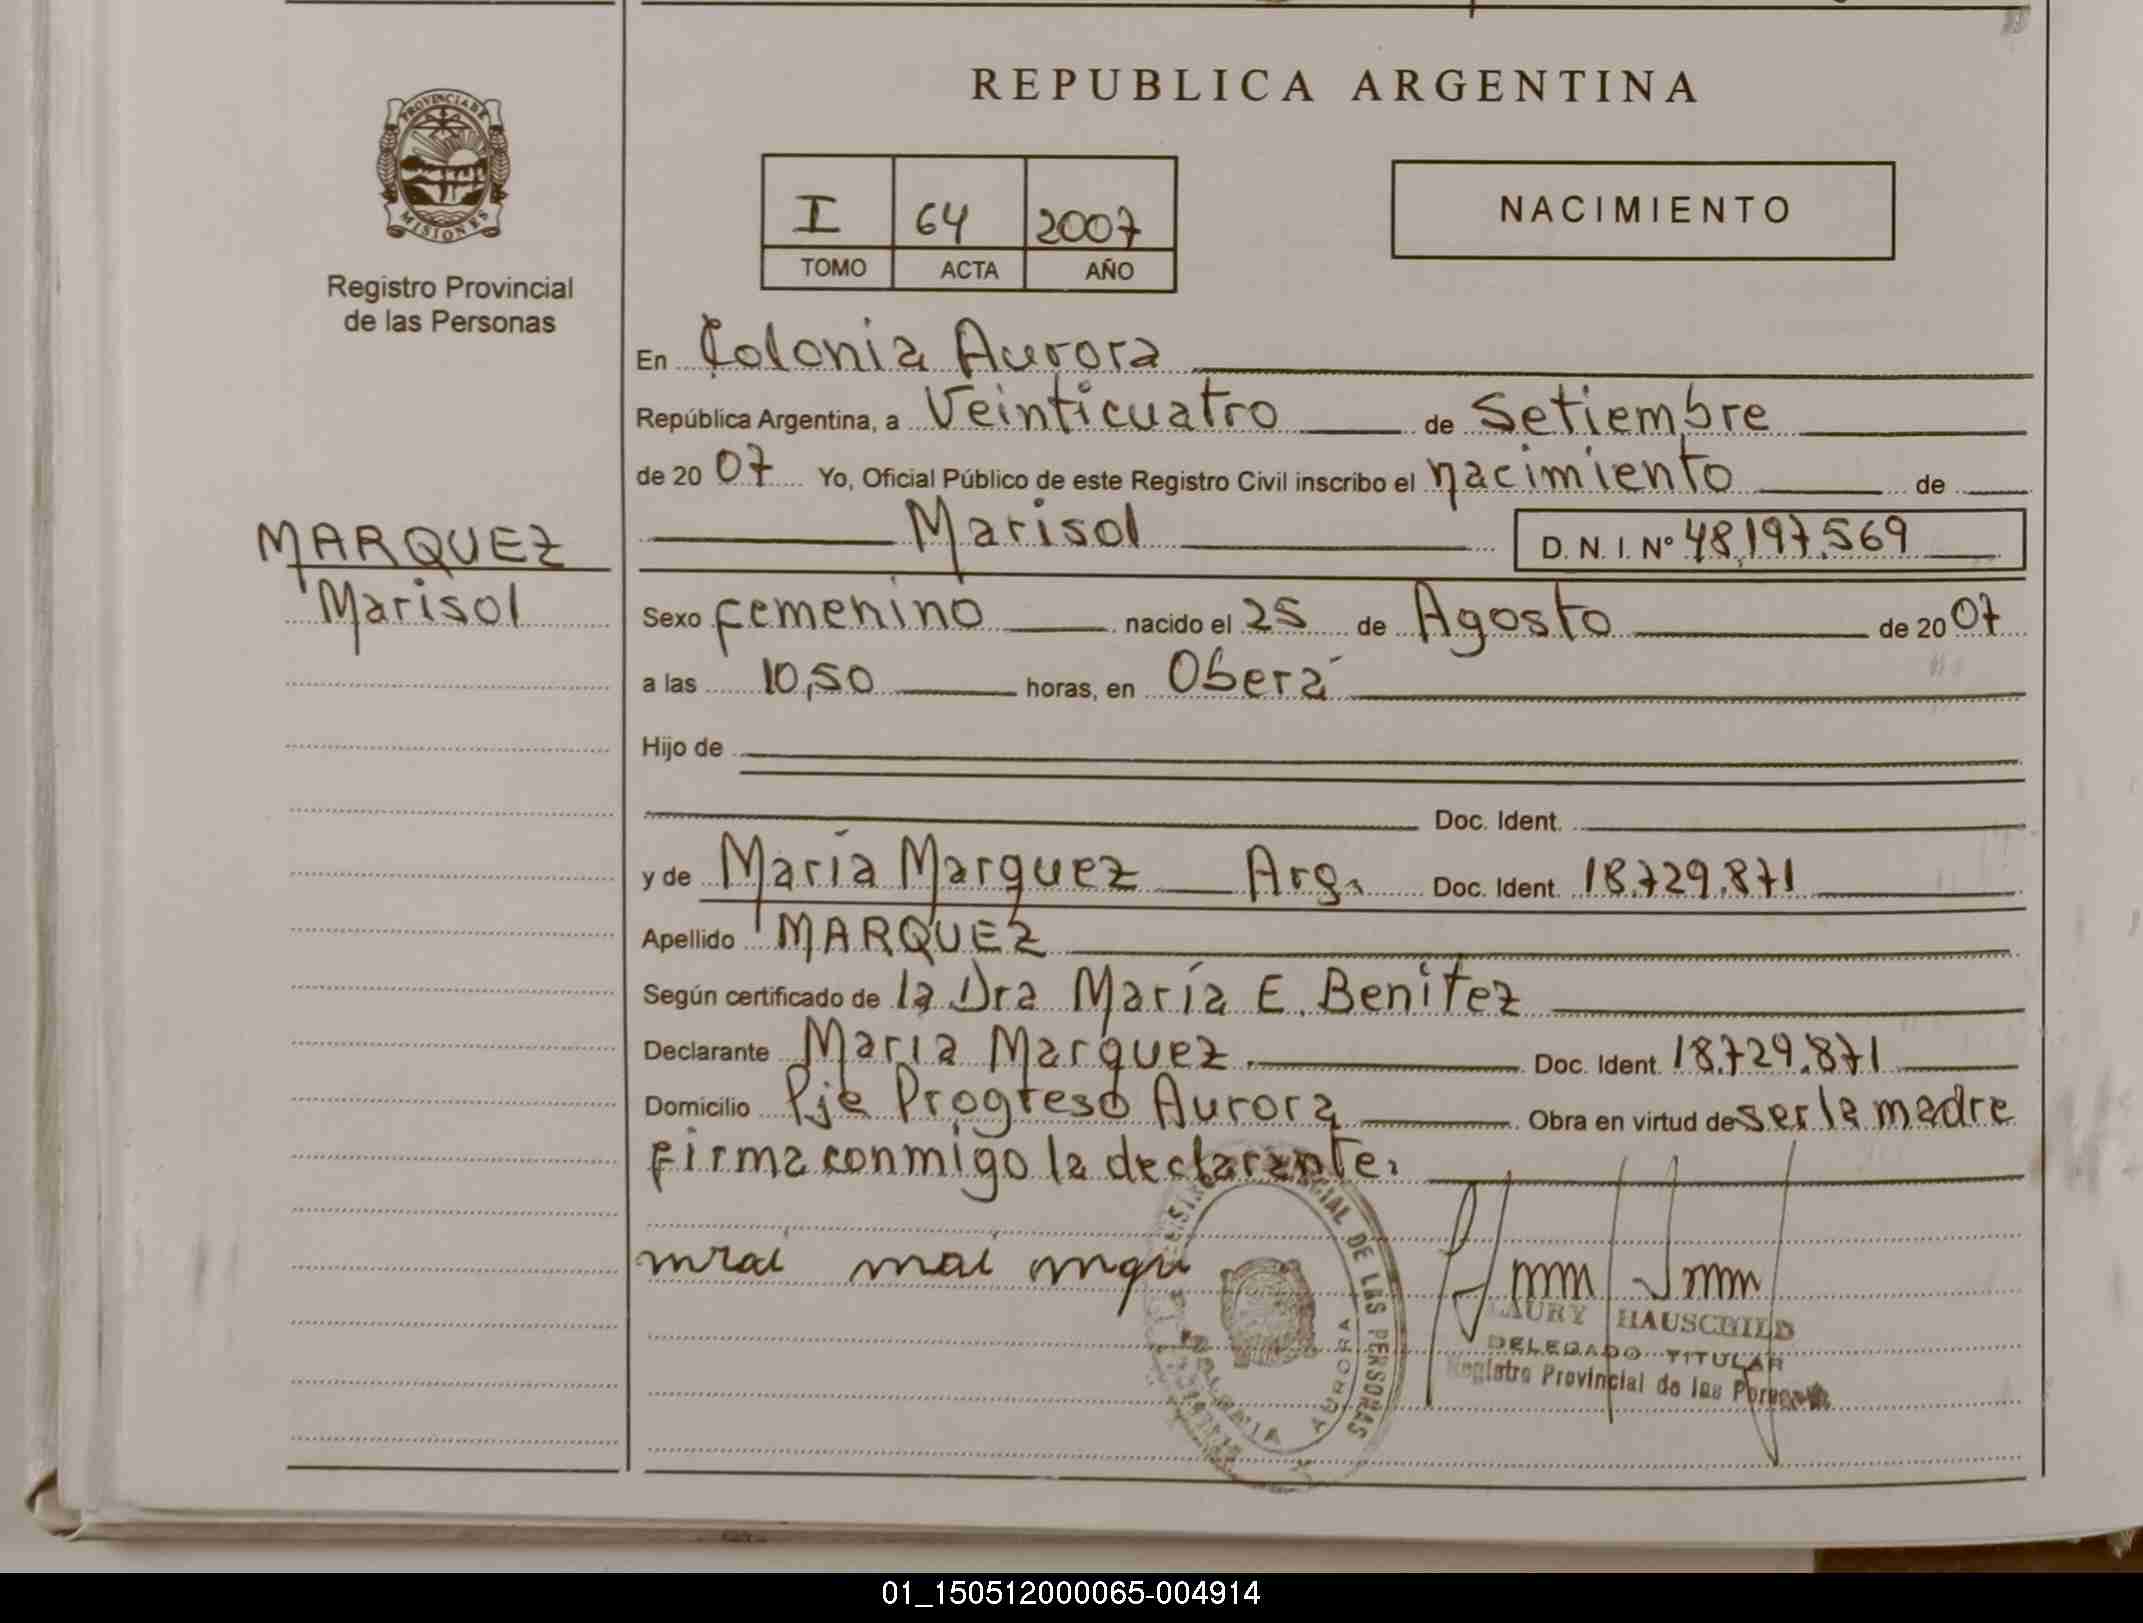 REPUBLICA ARGENTINA
PROVINCIA DE
MISIONES
Registro Provincial
de las Personas
I 64 2007
TOMO ACTA AÑO
NACIMIENTO
En Colonia Aurora
República Argentina, a Veinticuatro de Setiembre
de 20 07 Yo, Oficial Público de este Registro Civil inscribo el nacimiento de
Marisol D. N. I. Nº 48.197.569
MARQUEZ
Marisol
Sexo femenino nacido el 25 de Agosto de 20 07
a las 10,50 horas, en Oberá
Hijo de
Doc. Ident.
y de María Marquez Arg. Doc. Ident. 18.729.871
Apellido MARQUEZ
Según certificado de la Dra María E. Benitez
Declarante Maria Marquez. Doc. Ident. 18.729.871
Domicilio Pje Progreso Aurora Obra en virtud de ser la madre
firma conmigo la declarante.
PROVINCIAL DE LAS PERSONAS
COLONIA AURORA
LAURY HAUSCHILD
DELEGADO TITULAR
Registro Provincial de las Personas
01_150512000065-004914